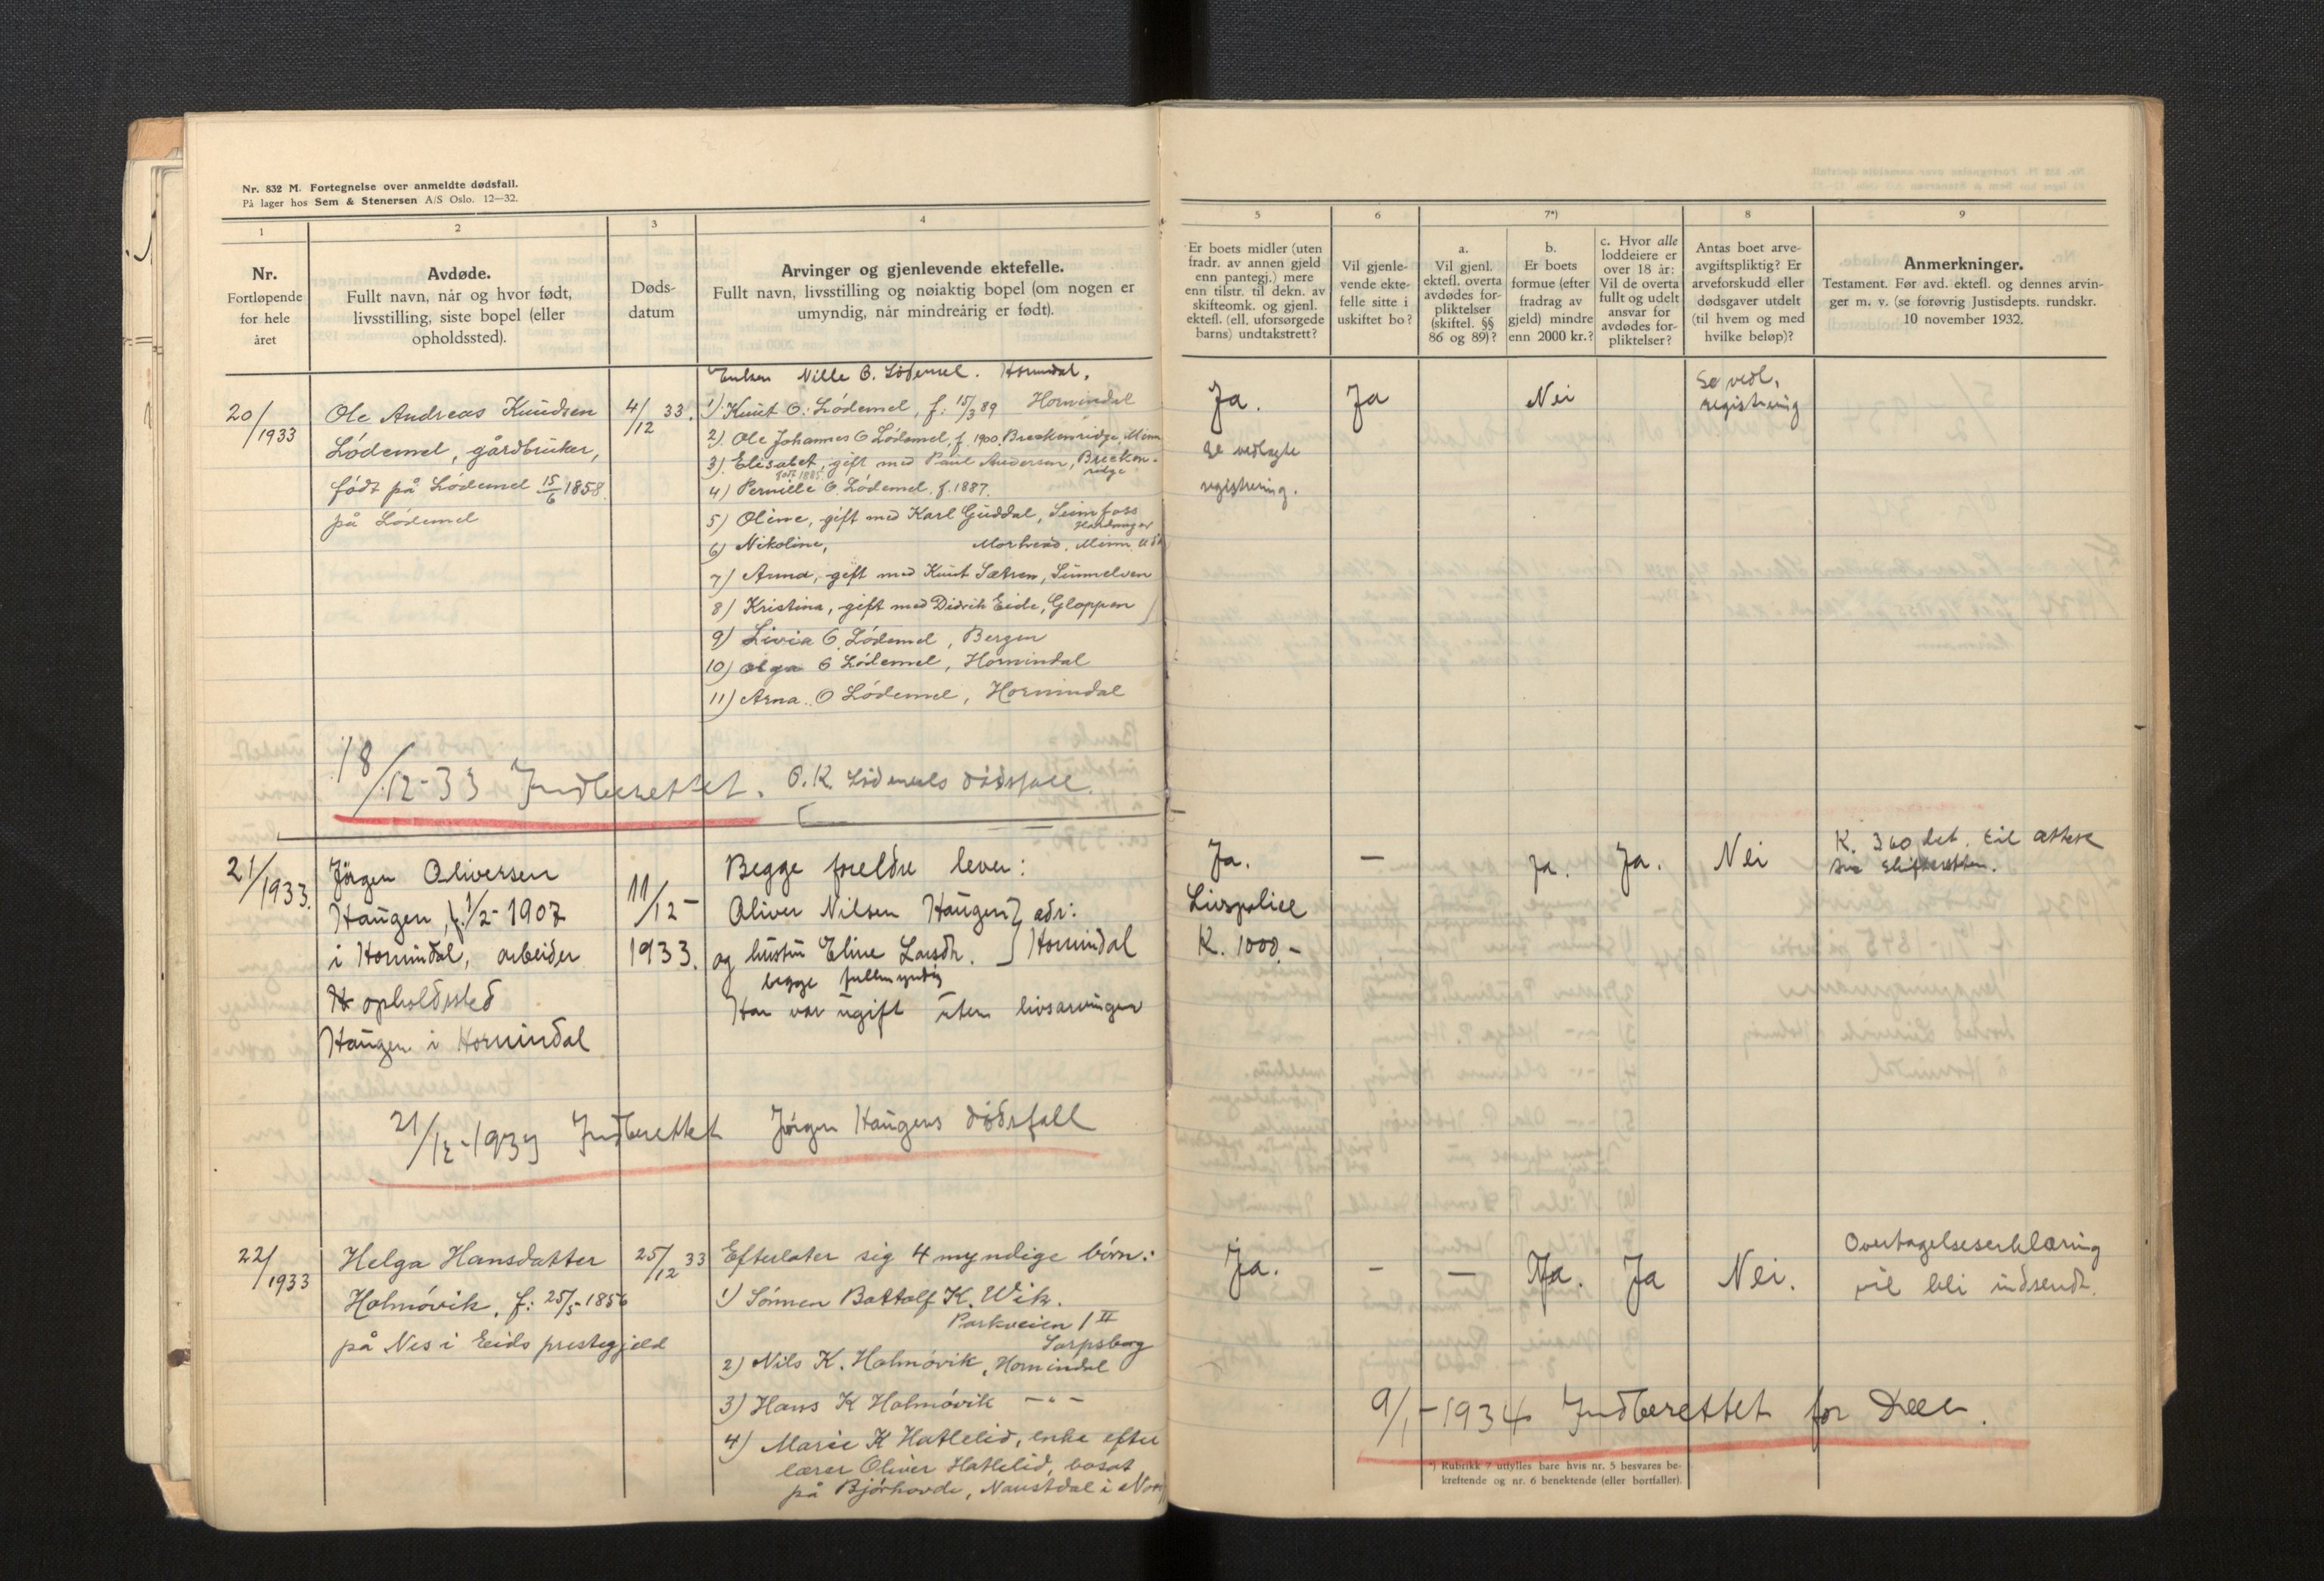 Nr. 832 M. Fortegnelse over anmeldte dødsfall.
På lager hos Sem & Stenersen A/S Oslo. 12—32.
1
2
3
4
Nr.
Fortløpende
for hele
året
Avdøde.
Fullt navn, når og hvor født,
livsstilling, siste bopel (eller
opholdssted).
Døds-
datum
Arvinger og gjenlevende ektefelle.
Fullt navn, livsstilling og nøiaktig bopel (om nogen er
umyndig, når mindreårig er født).
20/1933
Ole Andreas Knudsen
Lødemel, gårdbruker,
født på Lødemel 15/6 1858
på Lødemel
4/12 33.
Enken Nille O. Lødemel. Hornindal.
1) Knut O. Lødemel, f: 15/3 89 Hornindal
2) Ole Johannes O Lødemel, f. 1900, Breckenridge, Minn
3) Elisabet, gift med Paul Andersen, Brecken-
født 1885 ridge
4) Pernille O. Lødemel. f. 1887.
5) Oline, gift med Karl Guddal,
Hardanger
6) Nikoline, Minn. USA
7) Anna, gift med Knut Sætren, Sunnelven
8) Kristina, gift med Didrik Eide, Gloppen
9) Livia O. Lødemel, Bergen
10) Olga O Lødemel, Hornindal
11) Arna O Lødemel, Hornindal
18/12-33 Indberettet. O. K. Lødemels dødsfall.
21/1933.
Jørgen Oliversen
Haugen, f. 1/2-1907
i Hornindal, arbeider
opholdssted
Haugen i Hornindal
11/12-
1933.
Begge foreldre lever:
Oliver Nilsen Haugen } adr:
og hustru Eline Larsdtr. } Hornindal
begge fullmyndig
Han var ugift uten livsarvinger
21/12-1933 Indberettet Jørgen Haugens dødsfall
22/1933
Helga Hansdatter
Holmøvik, f: 25/5-1856
på Nes i Eids prestegjeld
25/12 33
Efterlater sig 4 myndige børn:
1) Sønnen Bottolf K. Wik.
Parkveien 1 II
Sarpsborg
2) Nils K. Holmøvik, Hornindal
3) Hans K Holmøvik -"-
4) Marie K Hatlelid, enke efter
lærer Oliver Hatlelid, bosat
på Bjørhovde, Naustdal i
5
6
7*)
8
9
Er boets midler (uten
fradr. av annen gjeld
enn pantegj.) mere
enn tilstr. til dekn. av
skifteomk. og gjenl.
ektefl. (ell. uforsørgede
barns) undtakstrett?
Vil gjenle-
vende ekte-
felle sitte i
uskiftet bo?
a.
Vil gjenl.
ektefl. overta
avdødes for-
pliktelser
(skiftel. §§
86 og 89)?
b.
Er boets
formue (efter
fradrag av
gjeld) mindre
enn 2000 kr.?
c. Hvor alle
loddeiere er
over 18 år:
Vil de overta
fullt og udelt
ansvar for
avdødes for-
pliktelser?
Antas boet arve-
avgiftspliktig? Er
arveforskudd eller
dødsgaver utdelt
(til hvem og med
hvilke beløp)?
Anmerkninger.
Testament. Før avd. ektefl. og dennes arvin-
ger m. v. (se forøvrig Justisdepts. rundskr.
10 november 1932.
Ja.
Se vedlagte
registrering.
Ja
Nei
Se vedl.
registrering
Ja.
Livspolice
K. 1000.-
—
Ja.
Ja.
Nei
K. 360
Ja.
-
—
Ja.
Ja
Nei.
Overtagelseserklæring
vil bli indsendt.
9/1-1934 Indberettet for
*) Rubrikk 7 utfylles bare hvis nr. 5 besvares be-
kreftende og nr. 6 benektende (eller bortfaller).